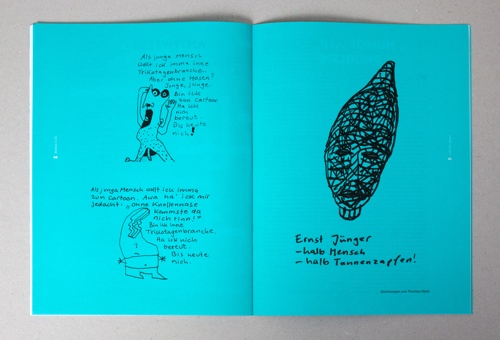 Als junga Mensch
wollt ick imma inne
Trikotagenbranche.
Aber ohne Hosen?
Junge, Junge.
Bin ick
zum Cartoon
Ha ick
nich
bereut.
Bis heute
nich!
Als junga Mensch wollt ick imma
zum Cartoon. Awa ha' ick mir
jedacht: „Ohne Knollennase
kommste da
nich rinn!"
Bin ick inne
Trikotagenbranche.
Ha ick nich
bereut.
Bis heute
nich.
Ernst Jünger
– halb Mensch
– halb Tannenzapfen!